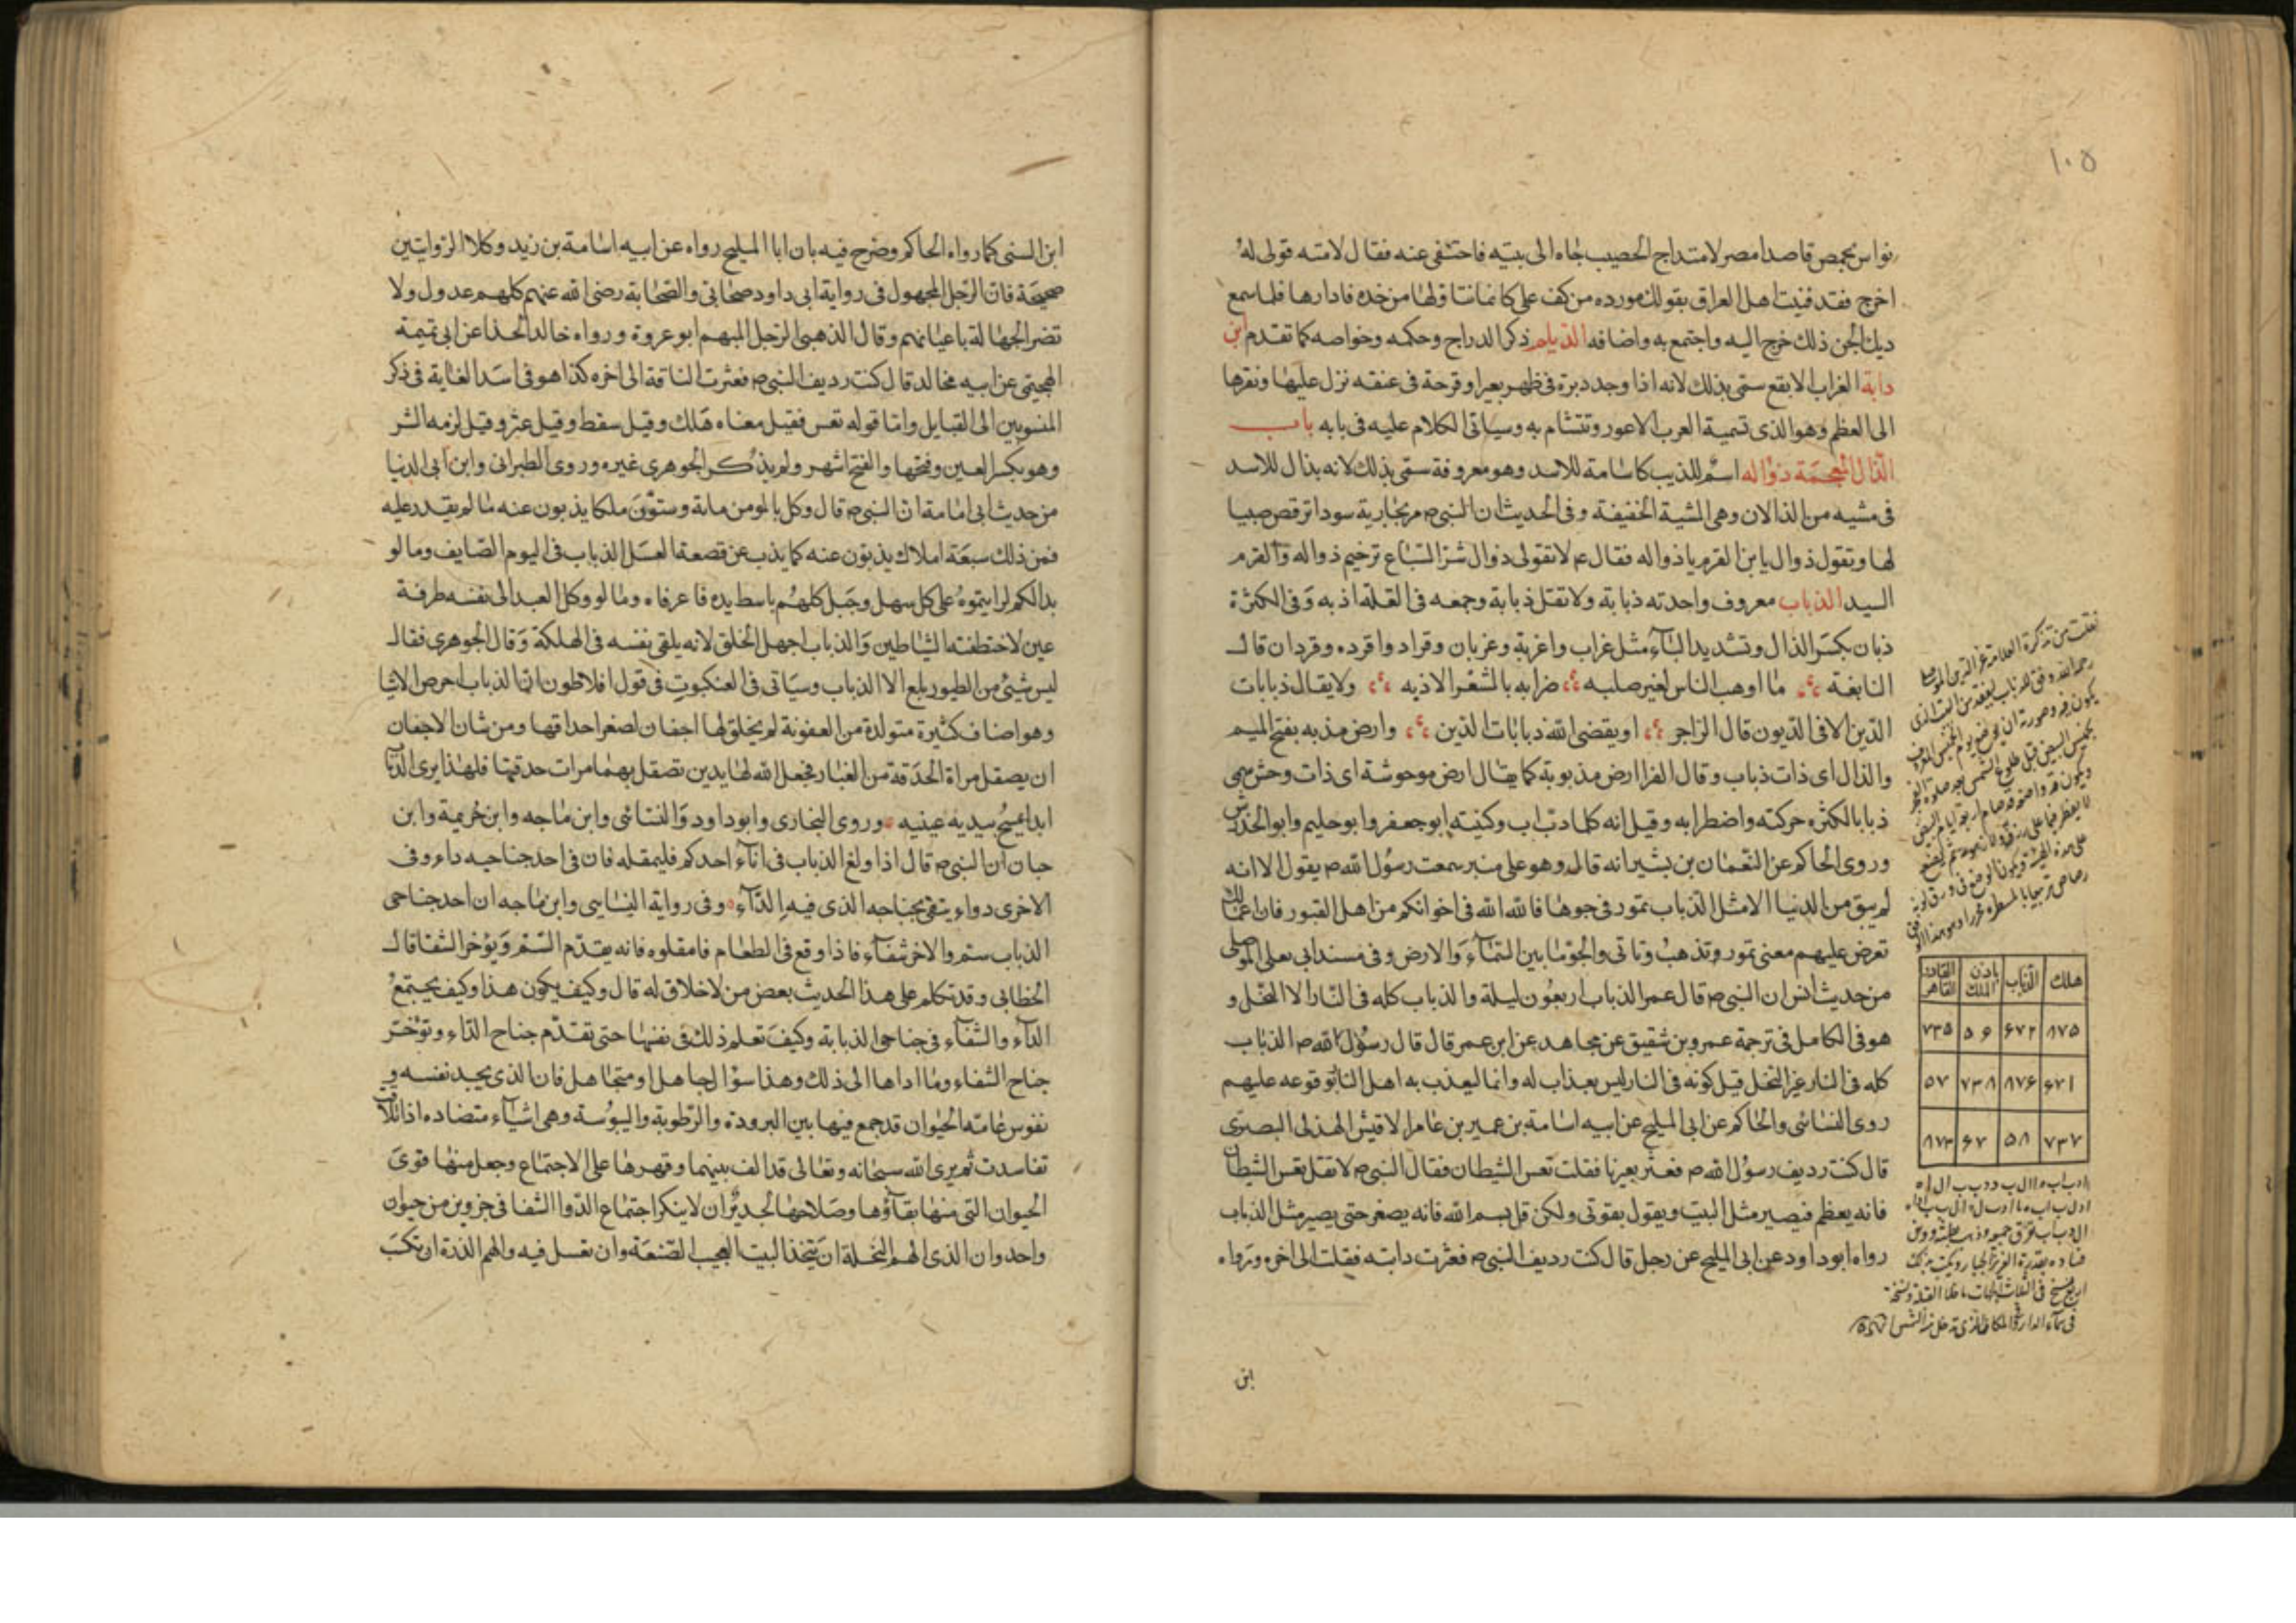 ١٠٥
نواس بحمص قاصدا مصر لامتداح الخصيب جاه الى بيته فاختفى عنه فقال لامته قولى له
اخرج فقد فتنت اهل العراق بقولك مورده من كف ظبى كانما تناولها من خده فادارها فلما سمع
ديك الجن ذلك خرج اليه واجتمع به واضافه الديلم ذكر الدراج وحكمه وخواصه كما تقدم ابن
داية الغراب الابقع سمى بذلك لانه اذا وجد دبرة فى ظهر بعير او قرحة فى عنقه نزل عليها ونقرها
الى العظم وهو الذى تسمية العرب الاعور وتتشام به وسياتى الكلام عليه فى بابه باب
الذال المعجمة ذواله اسم للذيب كاسامة للاسد وهو معروفة سمى بذلك لانه يذال للاسد
فى مشيه من الذالان وهى المشية الخفيفة وفى الحديث ان النبى ص مر بجارية سودا ترقص صبيا
لها وتقول ذوال يابن القرم ياذواله فقال ع لا تقولى ذوال شر السباع ترخيم ذواله والقرم
السيد الذباب معروف واحدته ذبابة ولا تقل ذبابة وجمعه فى القلة اذبه وفى الكثرة
ذبان بكسر الذال وتشديد الباء مثل غراب واغربة وغربان وقراد واقرده وقردان قالـ
النابغة ما اوهب الناس لغير صلبه ضرابه بالمشفر الاذبه ولا يقال ذبابات
الدين الا فى الديون قال الراجز او يقضى الله ذبابات الدين وارض مذبه بفتح الميم
والذال اى ذات ذباب وقال الفرا ارض مذبوبة كما يقال ارض موحوشة اى ذات وحش سمى
ذبابا لكثره حركته واضطرابه وقيل انه كلما ذب اب وكنيته ابو جعفر وابو حليم وابو الحدرش
وروى الحاكم عن النعمان بن بشير انه قال وهو على منبر سمعت رسول الله ص يقول الا انه
لم يبق من الدنيا الا مثل الذباب تمور فى جوها فالله الله فى اخوانكم من اهل القبور فان اعمالكم
تعرض عليهم معنى تمور وتذهب وتاتى والجو ما بين السماء والارض وفى مسند ابى يعلى الموصلى
من حديث انس ان النبى ص قال عمر الذباب اربعون ليلة والذباب كله فى النار الا النحل و
هو فى الكامل فى ترجمة عمرو بن شقيق عن مجاهد عن ابن عمر قال قال رسول الله ص الذباب
كله فى النار غير النحل قيل كونه فى النار ليس بعذاب له وانما ليعذب به اهل النار بوقوعه عليهم
روى النسائى والحاكم عن ابى المليح عن ابيه اسامة بن عمير بن عامر الاقيش الهذلى البصرى
قال كنت رديف رسول الله ص فعثر بعيرنا فقلت تعس الشيطان فقال النبى ص لا تقل تعس الشيطان
فانه يعظم فيصير مثل البيت ويقول بقوتى ولكن قل بسم الله فانه يصغر حتى يصير مثل الذباب
رواه ابو داود عن ابى المليح عن رجل قال كنت رديف النبى ص فعثرت دابته فقلت الى اخره ورواه
ابن
نقلت من تذكرة العلامة عز الدين الموصلى
هلك الذباب باذن الملك القادر القاهر
٨٧٥ ۶٧٢ ٥۶ ٧٣٥
۶٧١ ٨٧۶ ٧٣٨ ٥٧
٧٣٧ ٥٨ ۶٧ ٨٧٣
ابن السنى كما رواه الحاكم وصرح فيه بان ابا المليح رواه عن ابيه اسامة بن زيد وكلا الروايتين
صحيحة فان الرجل المجهول فى رواية ابى داود صحابى والصحابة رضى الله عنهم كلهم عدول ولا
تضر الجهالة باعيانهم وقال الذهبى الرجل المبهم ابو عروة ورواه خالد الحذا عن ابى تميمة
الهجيمى عن ابيه مخالد قال كنت رديف النبى ص فعثرت الناقة الى اخره كذا هو فى اسد الغابة فى ذكر
المنسوبين الى القبايل واما قوله تعس فقيل معناه هلك وقيل سقط وقيل عثر وقيل لزمه الشر
وهو بكسر العين وفتحها والفتح اشهر ولم يذكر الجوهرى غيره وروى الطبرانى وابن ابى الدنيا
من حديث ابى امامة ان النبى ص قال وكل بالمومن ماية وستون ملكا يذبون عنه ما لم يقدر عليه
فمن ذلك سبعة املاك يذبون عنه كما يذب عن قصعة العسل الذباب فى اليوم الصايف وما لو
بدا لكم لرايتموه على كل سهل وجبل كلهم باسط يده فاغر فاه وما لو وكل العبد الى نفسه طرفة
عين لاختطفته الشياطين والذباب اجهل الخلق لانه يلقى نفسه فى الهلكة وقال الجوهرى فقالـ
ليس شيئ من الطيور يلع الا الذباب وسياتى فى العنكبوت فى قول افلاطون ان الذباب احرص الاشيا
وهو اصناف كثيرة متولدة من العفونة لم يخلق لها اجفان لصغر احداقها ومن شان الاجفان
ان يصقل مراة الحدقة من الغبار فجعل الله لها يدين تصقل بهما مرات حدقتها فلهذا يرى الذباب
ابدا يمسح بيديه عينيه وروى البخارى وابو داود والنسائى وابن ماجه وابن خزيمة وابن
حبان ان النبى ص قال اذا ولغ الذباب فى اناء احدكم فليمقله فان فى احد جناحيه داء وفى
الاخرى دواء يتقى بجناحه الذى فيه الداء وفى رواية النسايى وابن ماجه ان احد جناحى
الذباب سم والاخر شفاء فاذا وقع فى الطعام فامقلوه فانه يقدم السم ويؤخر الشفا قالـ
الخطابى وقد تكلم على هذا الحديث بعض من لا خلاق له قال وكيف يكون هذا وكيف يجتمع
الداء والشفاء فى جناحى الذبابة وكيف تعلم ذلك فى نفسها حتى تقدم جناح الداء وتوخر
جناح الشفاء وما اداها الى ذلك وهذا سؤال جاهل او متجاهل فان الذى يجد نفسه و
نفوس عامة الحيوان قد جمع فيها بين البرودة والرطوبة واليبوسة وهى اشياء متضاده اذا تلاقت
تفاسدت ثم يرى الله سبحانه وتعالى قد الف بينهما وقهرها على الاجتماع وجعل منها قوى
الحيوان التى منها بقاؤها وصلاحها لجدير ان لا ينكر اجتماع الدوا الشفا فى جزوين من حيوان
واحد وان الذى الهم النحلة ان تتخذ البيت العجيب الصنعة وان تعسل فيه والهم الذرة ان تكتسب